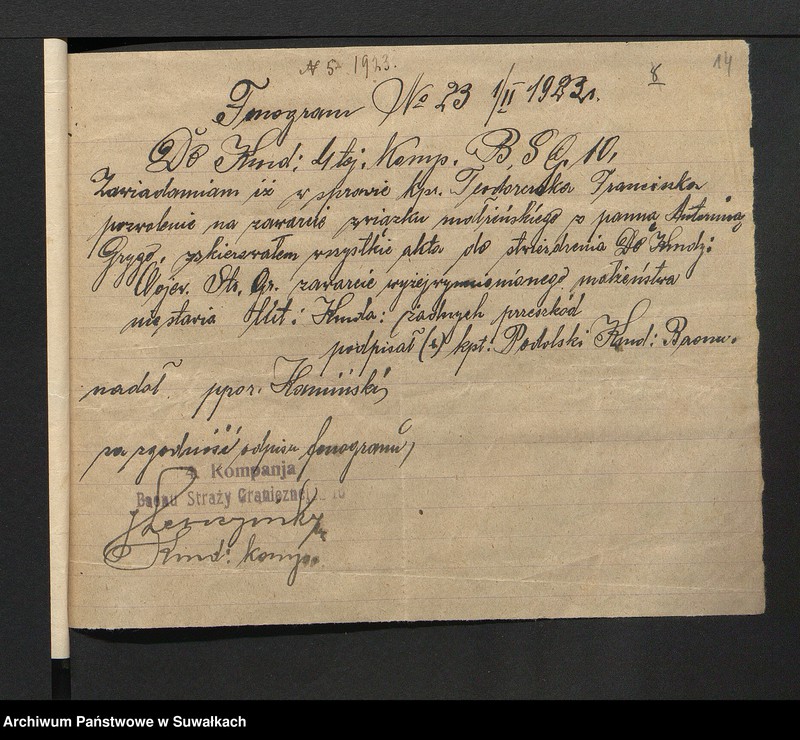 № 5. 1923.
8
14
Fonogram No 23 1/II 1923 r.
Do Kmd: 4tej. Komp. B. S. G. 10,
Zawiadamiam iż w sprawie kpr. Teodorczuka Franciszka
pozwolenie na zawarcie związku małżeńskiego z panną Antoniną
Grygo, skierowałem wszystkie akta do stwierdzenia Do Kmdy:
Wojew. Str. Gr. zawarcie wyżejwymienionego małżeństwa
nie stawia tut: Kmda: żadnych przeszkód
podpisał (-) kpt: Podolski Kmd: Baonu.
nadał ppor. Kamiński,
za zgodność odpisu fonogramu,
4. Kompanja
Baonu Straży Granicznej 10
Kmd: komp.
Archiwum Państwowe w Suwałkach